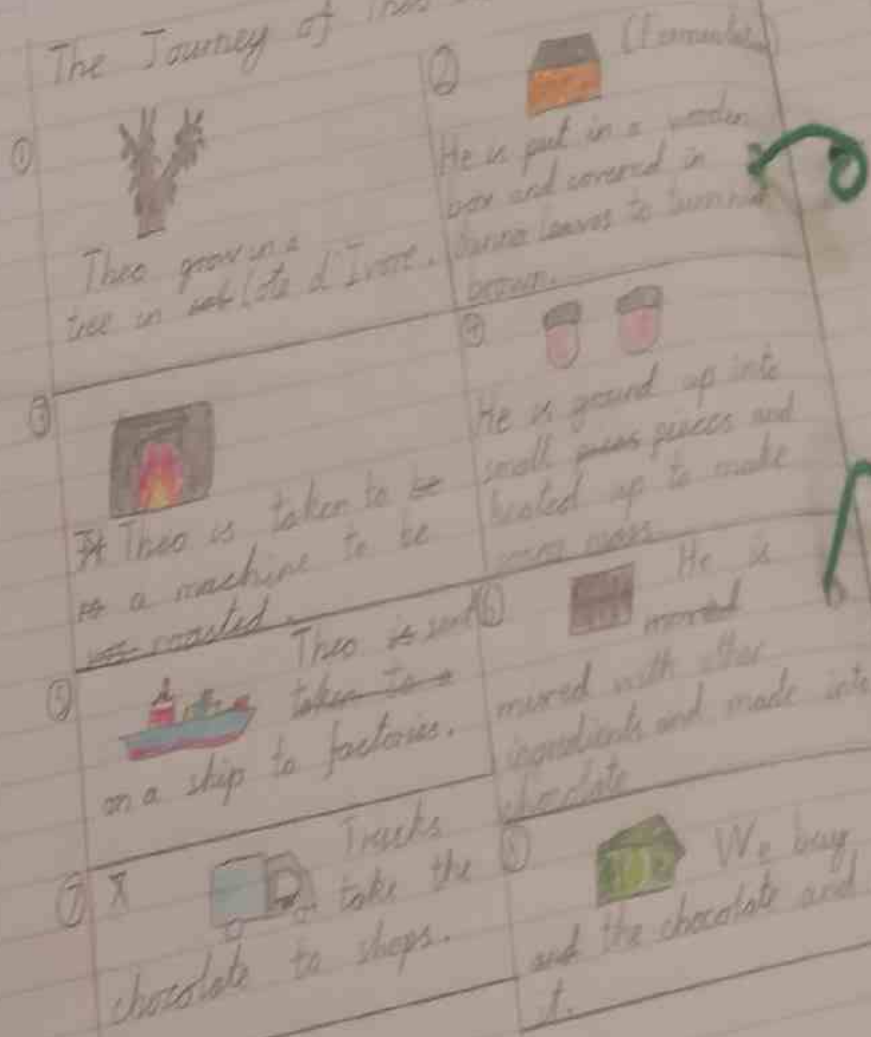 The Journey of Theo
①
Theo grow in a
tree in Cote d'Ivore.
②
He is put in a wooden
box and covered in
leaves to
brown.
③
Theo is taken to be
a machine to be
roasted.
④
He is ground up into
small pieces and
heated up to make
mass
⑤
Theo is sent
taken to a
on a ship to factories.
⑥
He is
mixed with other
ingredients and made into
chocolate
⑦ X
Trucks
take the
chocolate to shops.
⑧
We buy
and the chocolate and
it.